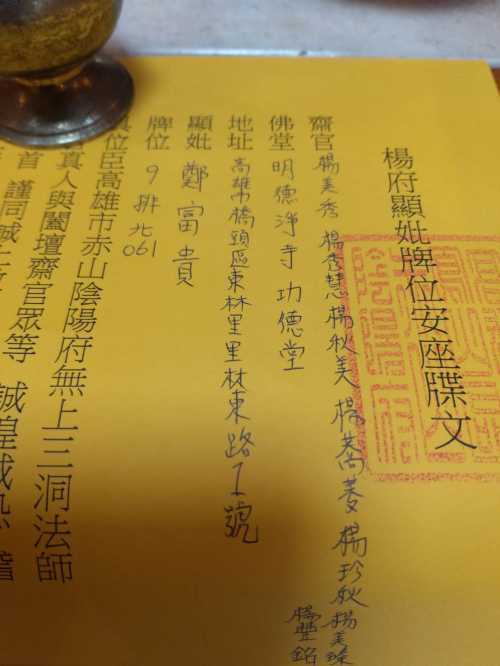 楊府顯妣牌位安座牒文
齋官 楊美秀 楊秀慧 楊秋美 楊蕎菱 楊珍秋 楊美
楊豐銘
佛堂 明德淨寺功德堂
地址 高雄市橋頭區東林里里林東路1號
顯妣 鄭富貴
牌位 9排北061
位臣高雄市赤山陰陽府無上三洞法師
真人與闔壇齋官眾等 誠皇誠恐 稽
首 謹同誠上